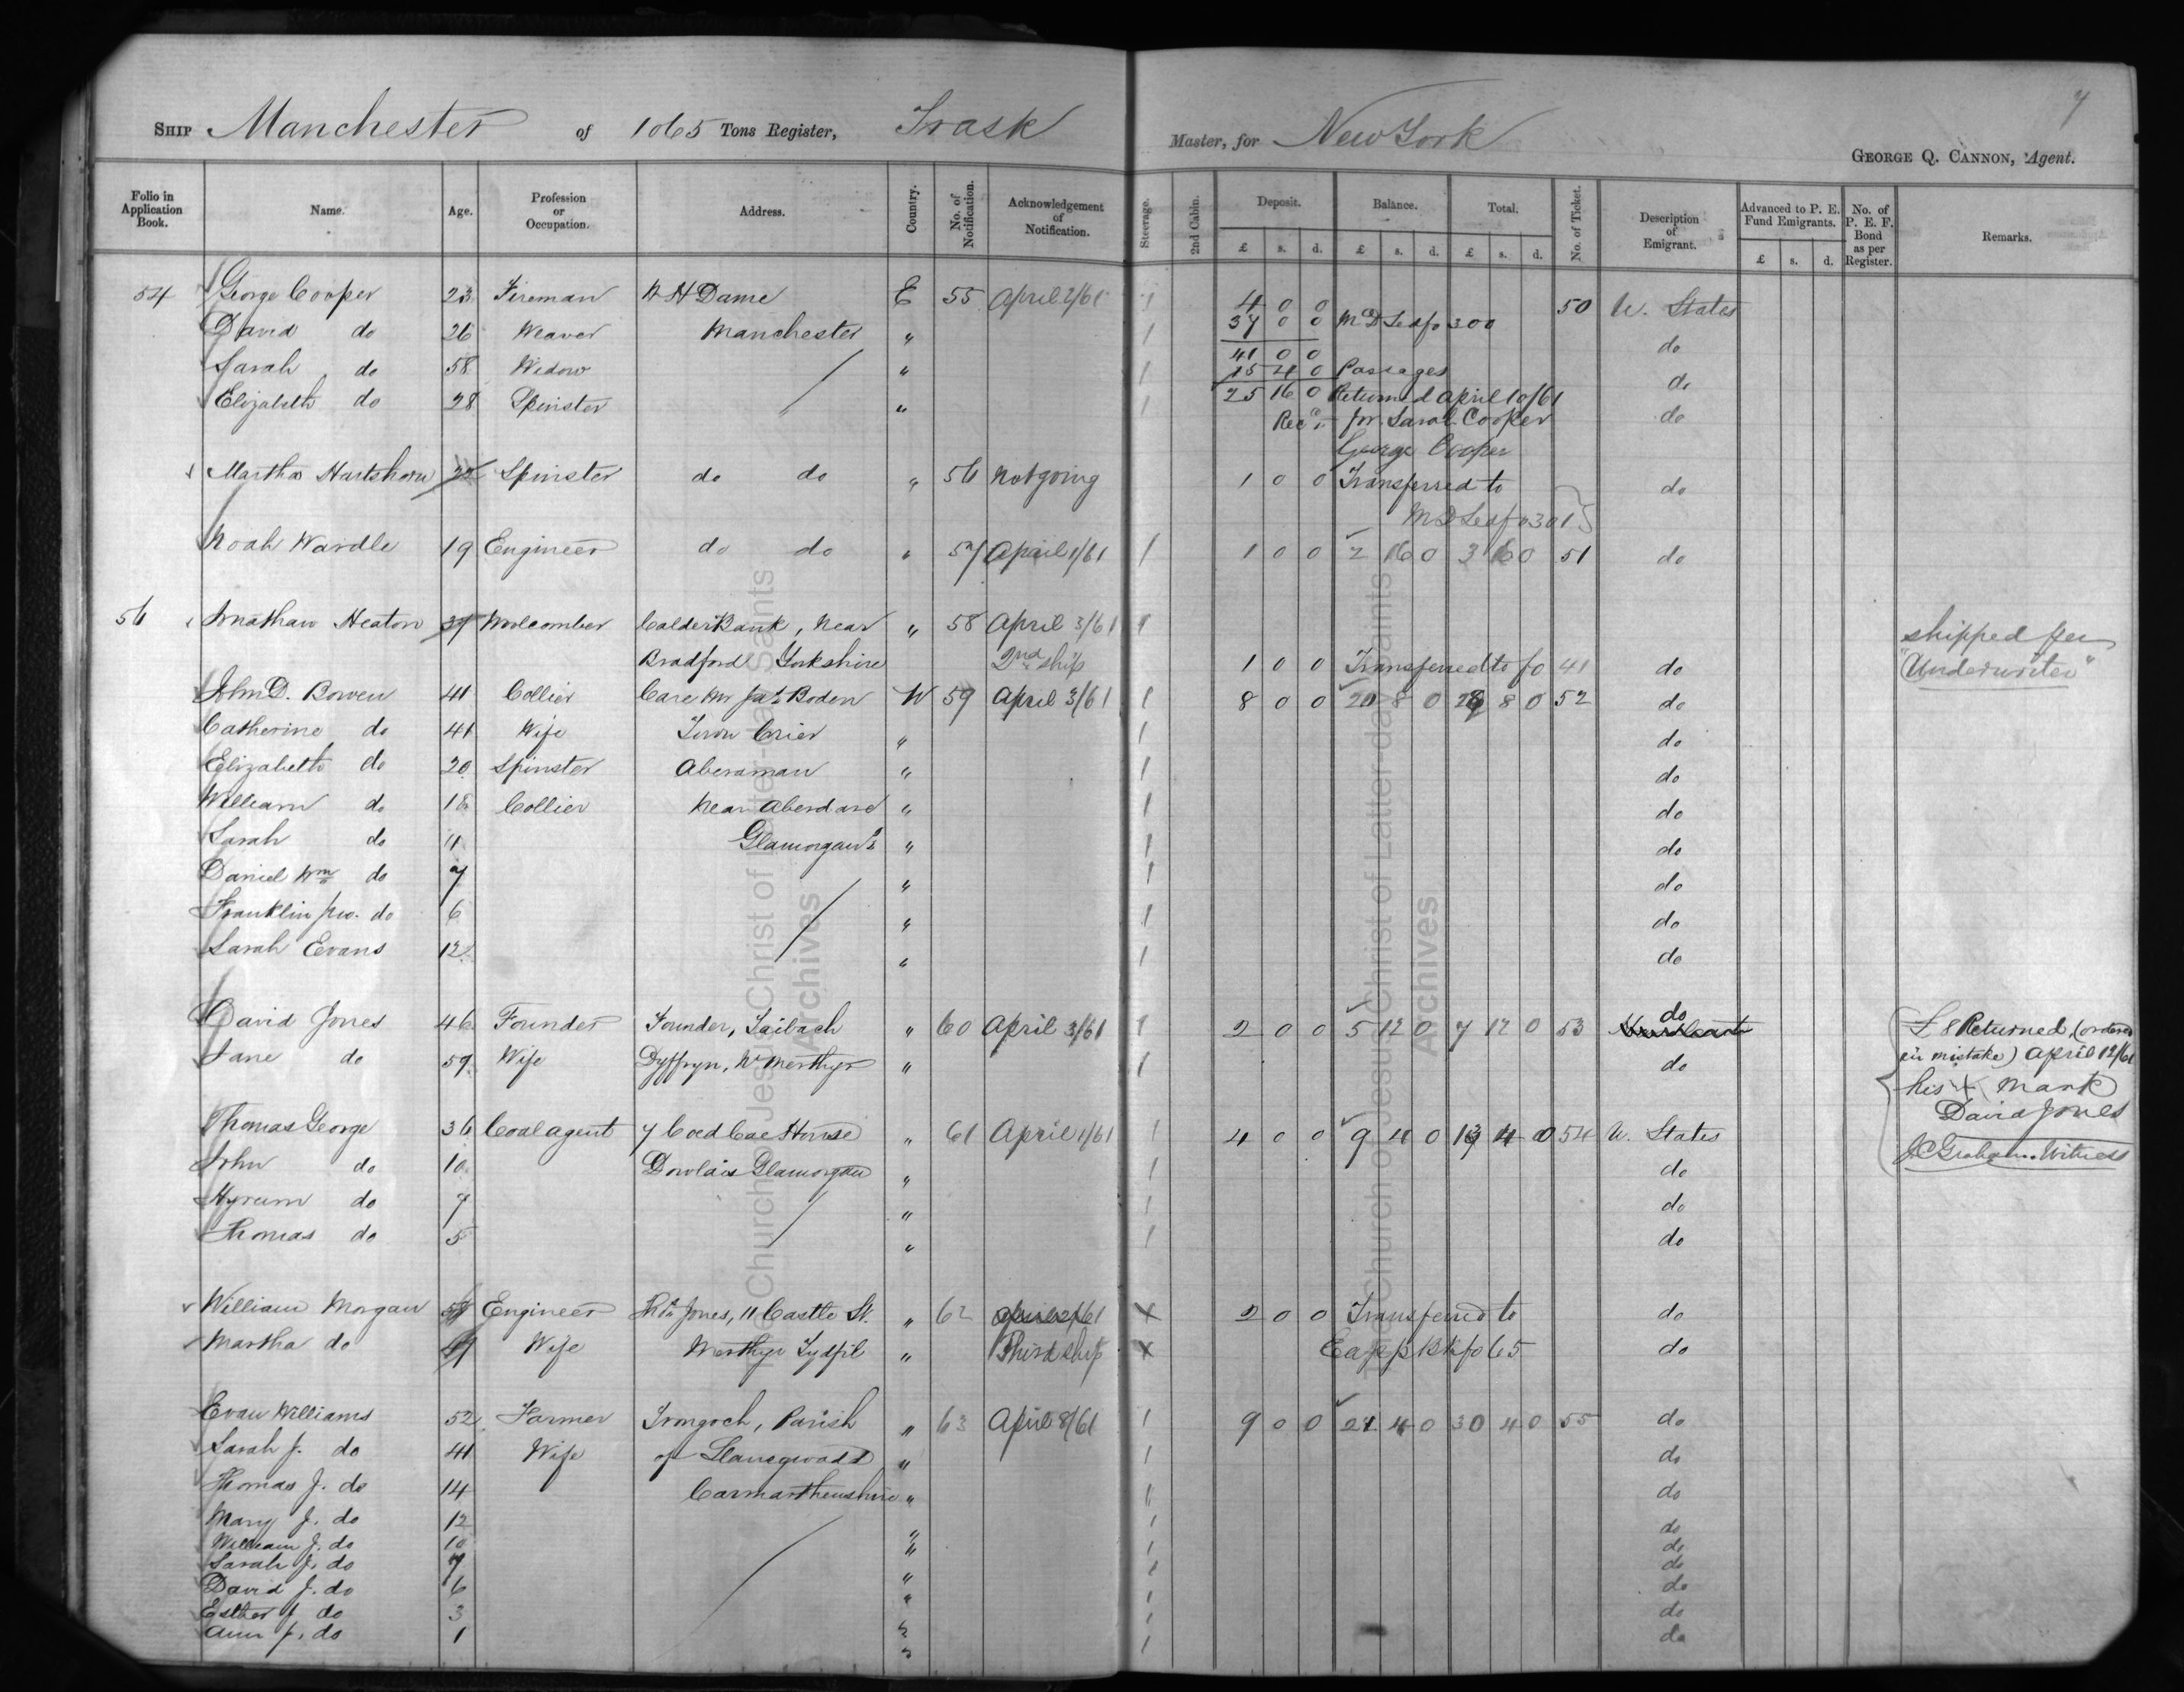 7
SHIP Manchester of 1065 Tons Register, Trask Master, for New York
GEORGE Q. CANNON, Agent.
Folio in Application Book. Name. Age. Profession or Occupation. Address. Country. No. of Notification. Acknowledgement of Notification. Steerage. 2nd Cabin. Deposit. Balance. Total. No. of Ticket. Description of Emigrant. Advanced to P. E. Fund Emigrants. No. of P. E. F. Bond as per Register. Remarks.
£ s. d. £ s. d. £ s. d. £ s. d.
54 George Cooper 23 Fireman W H Dame E 55 April 2/61 1 4 0 0 50 U. States
David do 26 Weaver Manchester " 1 37 0 0 300 do
41 0 0
Sarah do 58 Widow " 1 15 4 0 Passages do
Elizabeth do 28 Spinster " 1 25 16 0 Returned April 10/61 do
Rec'd for Sarah Cooper
George Cooper
Martha Hartshorn 22 Spinster do do " 56 Not going 1 0 0 Transferred to do
301
Noah Wardle 19 Engineer do do " 57 April 1/61 1 1 0 0 2 16 0 3 16 0 51 do
56 Jonathan Heaton 39 Woolcomber Calder Bank, Near " 58 April 3/61 1 shipped per
Bradford Yorkshire 2nd ship 1 0 0 Transferred to fo 41 do "Underwriter"
John D. Bowen 41 Collier Care Mr Jas Boden W 59 April 3/61 1 8 0 0 20 8 0 28 8 0 52 do
Catherine do 41 Wife " 1 do
Elizabeth do 20 Spinster Aberaman " 1 do
William do 18 Collier Near Aberdare " 1 do
Sarah do 11 Glamorgan " 1 do
Daniel Wm do 7 " 1 do
Franklin do 6 " 1 do
Sarah Evans 12 " 1 do
David Jones 46 Founder Founder, Taibach " 60 April 3/61 1 2 0 0 5 12 0 7 12 0 53 do £8 Returned, (ordered
Jane do 59 Wife Dyffryn, Nr Merthyr " 1 do in mistake) April 12/61
his X mark
David Jones
Thomas George 36 Coal agent 7 Coed Cae House " 61 April 1/61 1 4 0 0 9 4 0 13 4 0 54 U. States
J C Graham. Witness
John do 10 Dowlais Glamorgan " 1 do
Hyrum do 7 " 1 do
Thomas do 5 " 1 do
William Morgan Engineer Jones, 11 Castle St. " 62 April 2/61 X 2 0 0 Transferred to do
Martha do Wife Merthyr Tydfil " Third ship X fo 65 do
Evan Williams 52 Farmer Irongoch, Parish " 63 April 8/61 1 9 0 0 21 4 0 30 4 0 55 do
Sarah J. do 41 Wife of Llanegwadd " 1 do
Thomas J. do 14 Carmarthenshire " 1 do
Mary J. do 12 " 1 do
William J. do 10 " 1 do
Sarah J. do 7 " 1 do
David J. do 6 " 1 do
Esther J. do 3 " 1 do
Ann J. do 1 " 1 do
The Church of Jesus Christ of Latter-day Saints
Archives
The Church of Jesus Christ of Latter-day Saints
Archives